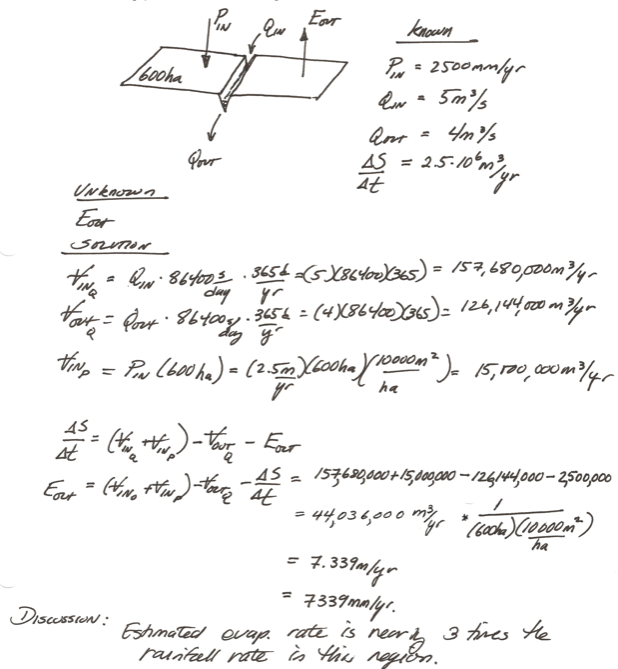 P_IN Q_IN E_OUT
600ha
Q_OUT
Known
P_IN = 2500mm/yr
Q_IN = 5m³/s
Q_OUT = 4m³/s
ΔS/Δt = 2.5·10⁶ m³/yr
UNKNOWN
E_OUT
SOLUTION
V_IN_Q = Q_IN · 86400 s/day · 365d/yr = (5)(86400)(365) = 157,680,000 m³/yr
V_OUT_Q = Q_OUT · 86400 s/day · 365d/yr = (4)(86400)(365) = 126,144,000 m³/yr
V_IN_P = P_IN (600ha) = (2.5m/yr)(600ha)(10000m²/ha) = 15,000,000 m³/yr
ΔS/Δt = (V_IN_Q + V_IN_P) - V_OUT_Q - E_OUT
E_OUT = (V_IN_Q + V_IN_P) - V_OUT_Q - ΔS/Δt = 157,680,000 + 15,000,000 - 126,144,000 - 2,500,000
= 44,036,000 m³/yr * 1/(600ha)(10000m²/ha)
= 7.339m/yr
= 7339mm/yr.
DISCUSSION: Estimated evap. rate is nearly 3 times the
rainfall rate in this region.